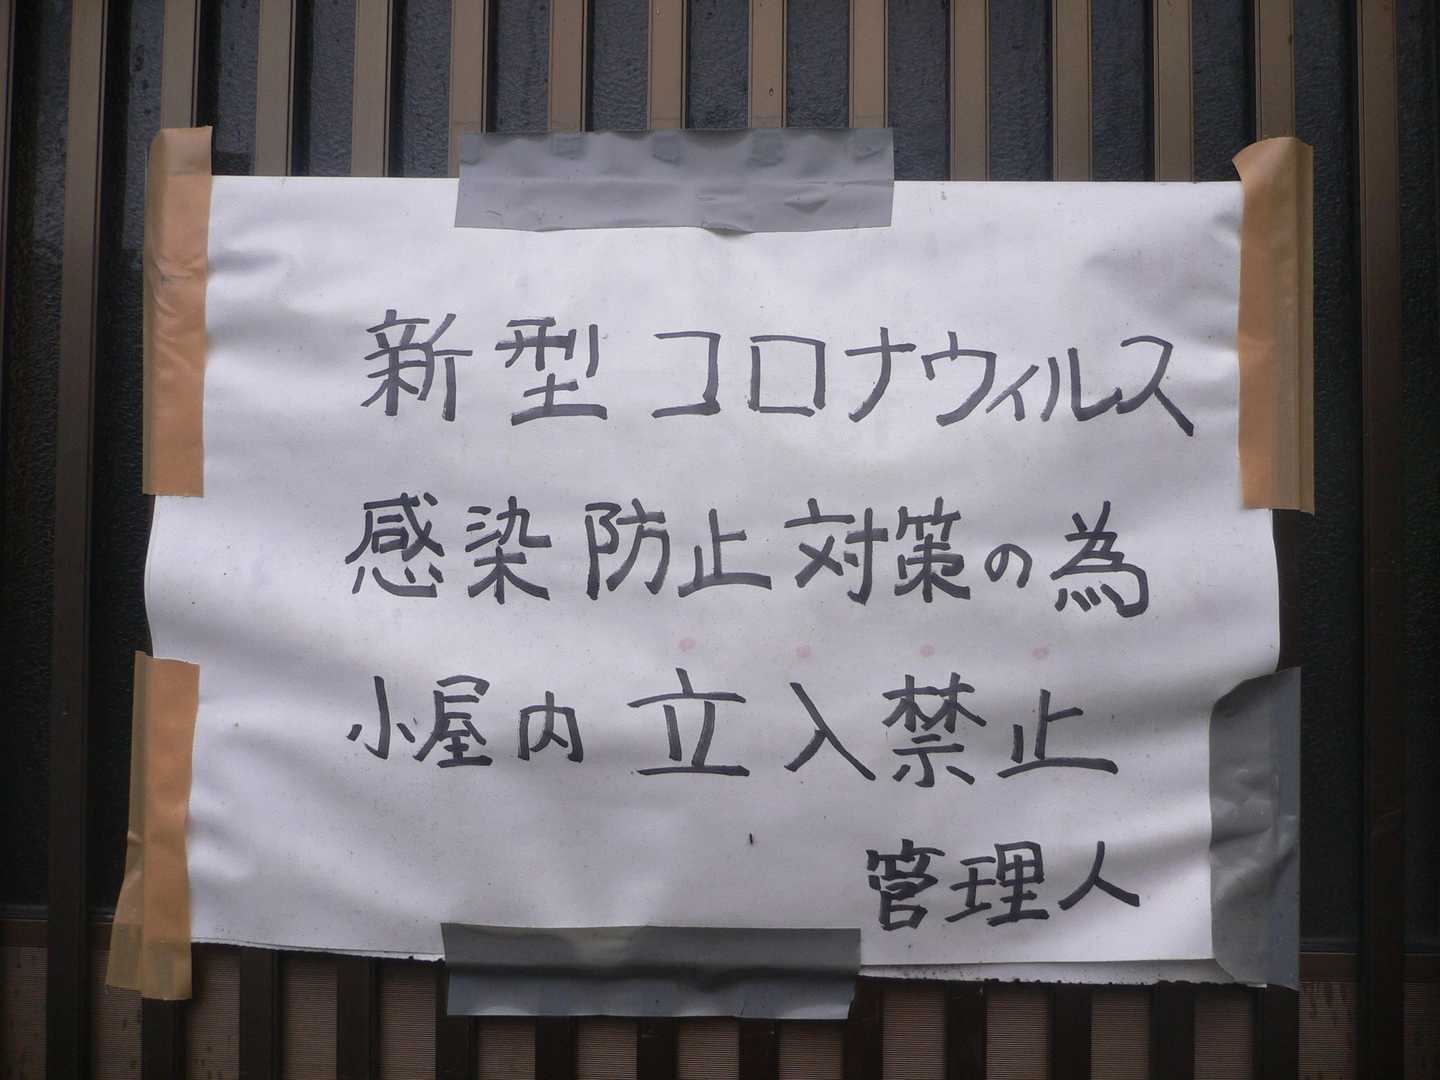 新型コロナウィルス
感染防止対策の為
小屋内立入禁止
管理人